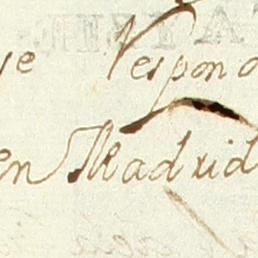 ye Respon
en Madrid